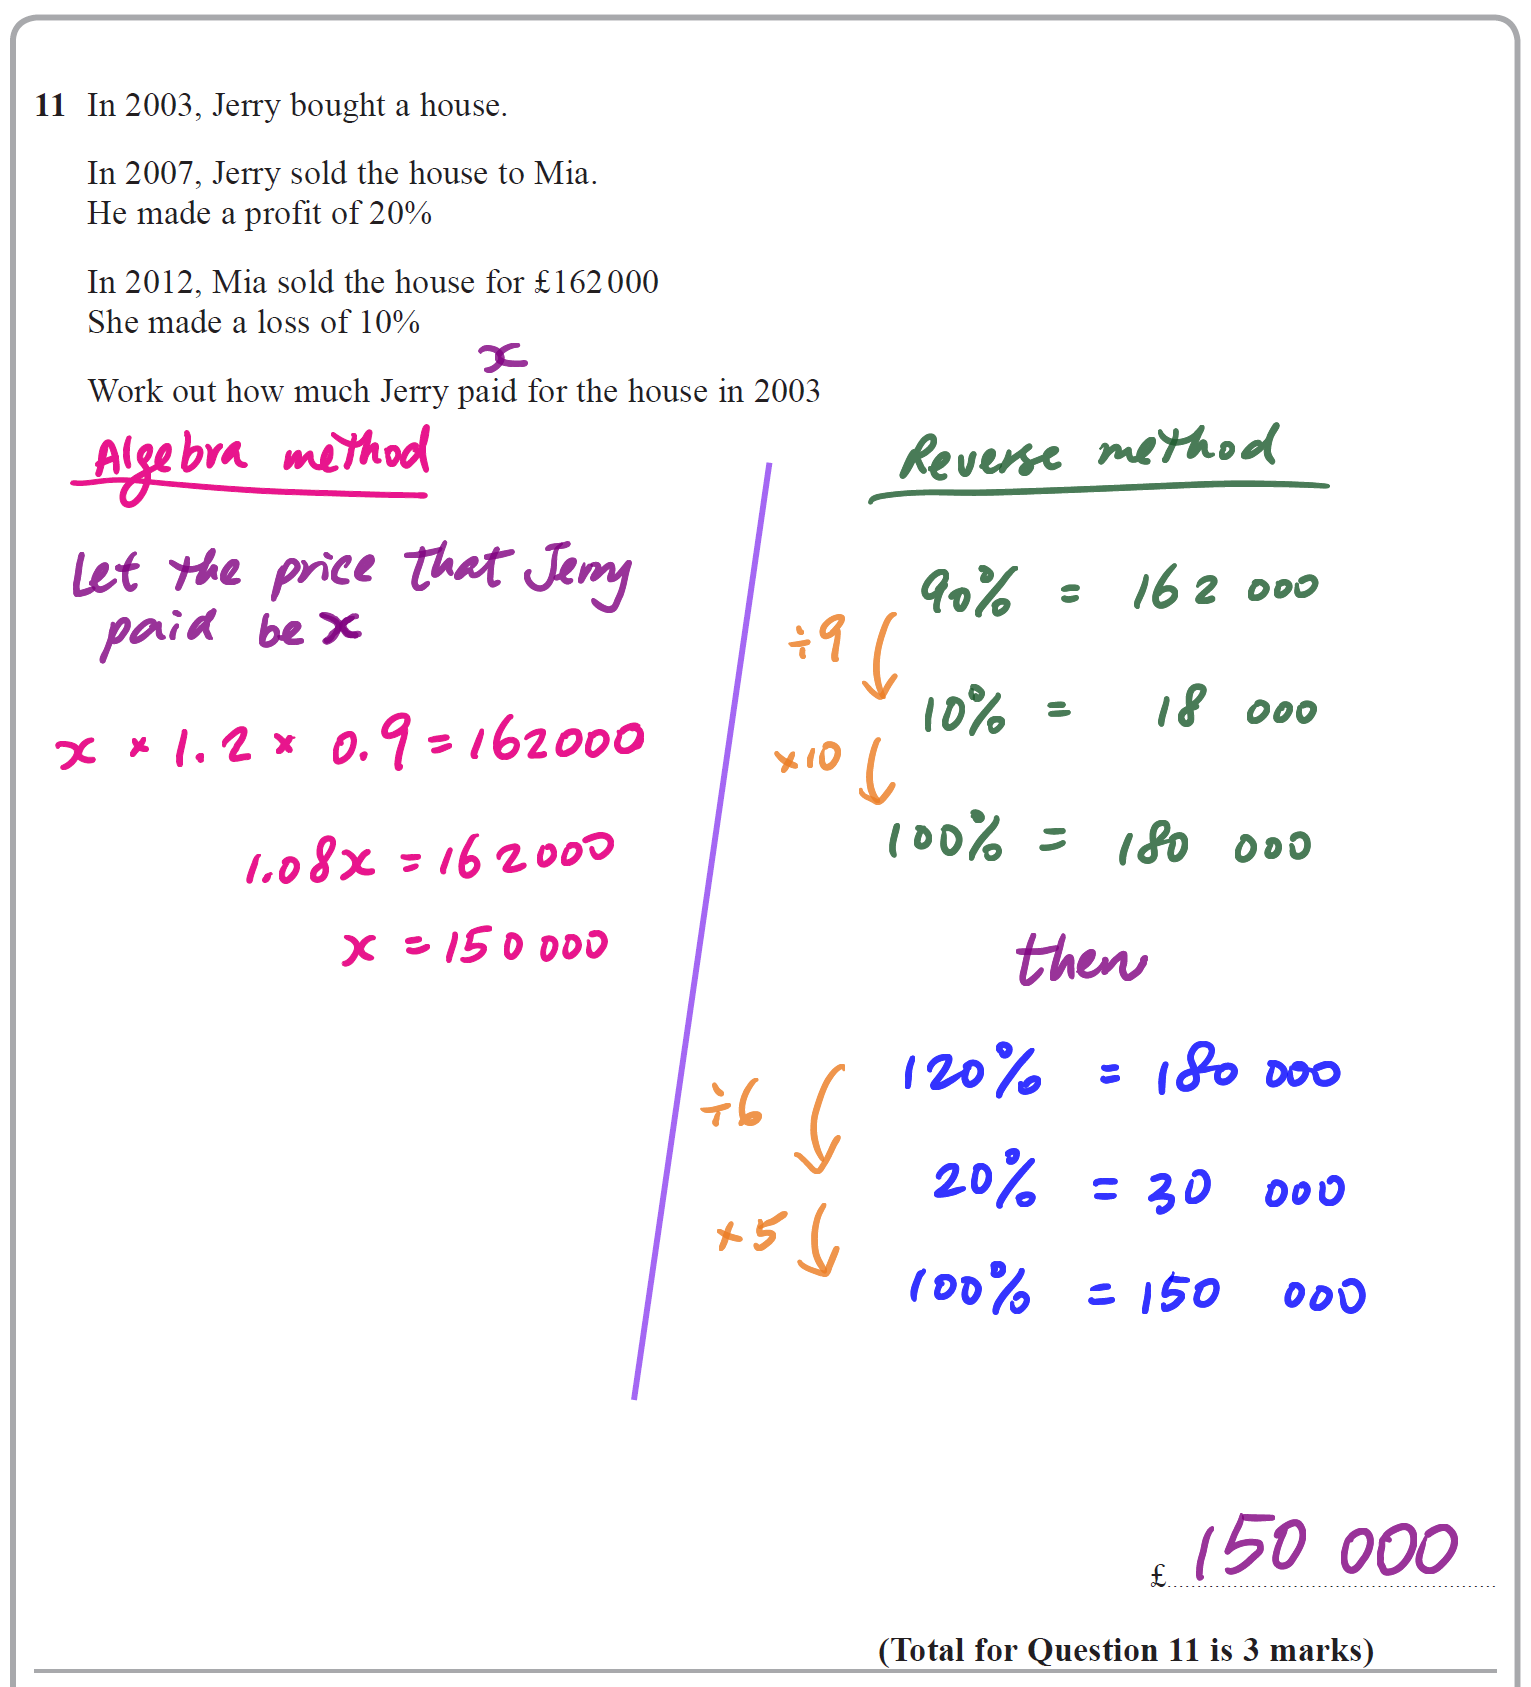 11 In 2003, Jerry bought a house.
In 2007, Jerry sold the house to Mia.
He made a profit of 20%
In 2012, Mia sold the house for £162 000
She made a loss of 10%
x
Work out how much Jerry paid for the house in 2003
Algebra method
Let the price that Jerry
paid be x
x × 1.2 × 0.9 = 162000
1.08x = 162000
x = 150 000
Reverse method
90% = 162 000
÷9
10% = 18 000
×10
100% = 180 000
then
120% = 180 000
÷6
20% = 30 000
×5
100% = 150 000
£ 150 000
(Total for Question 11 is 3 marks)